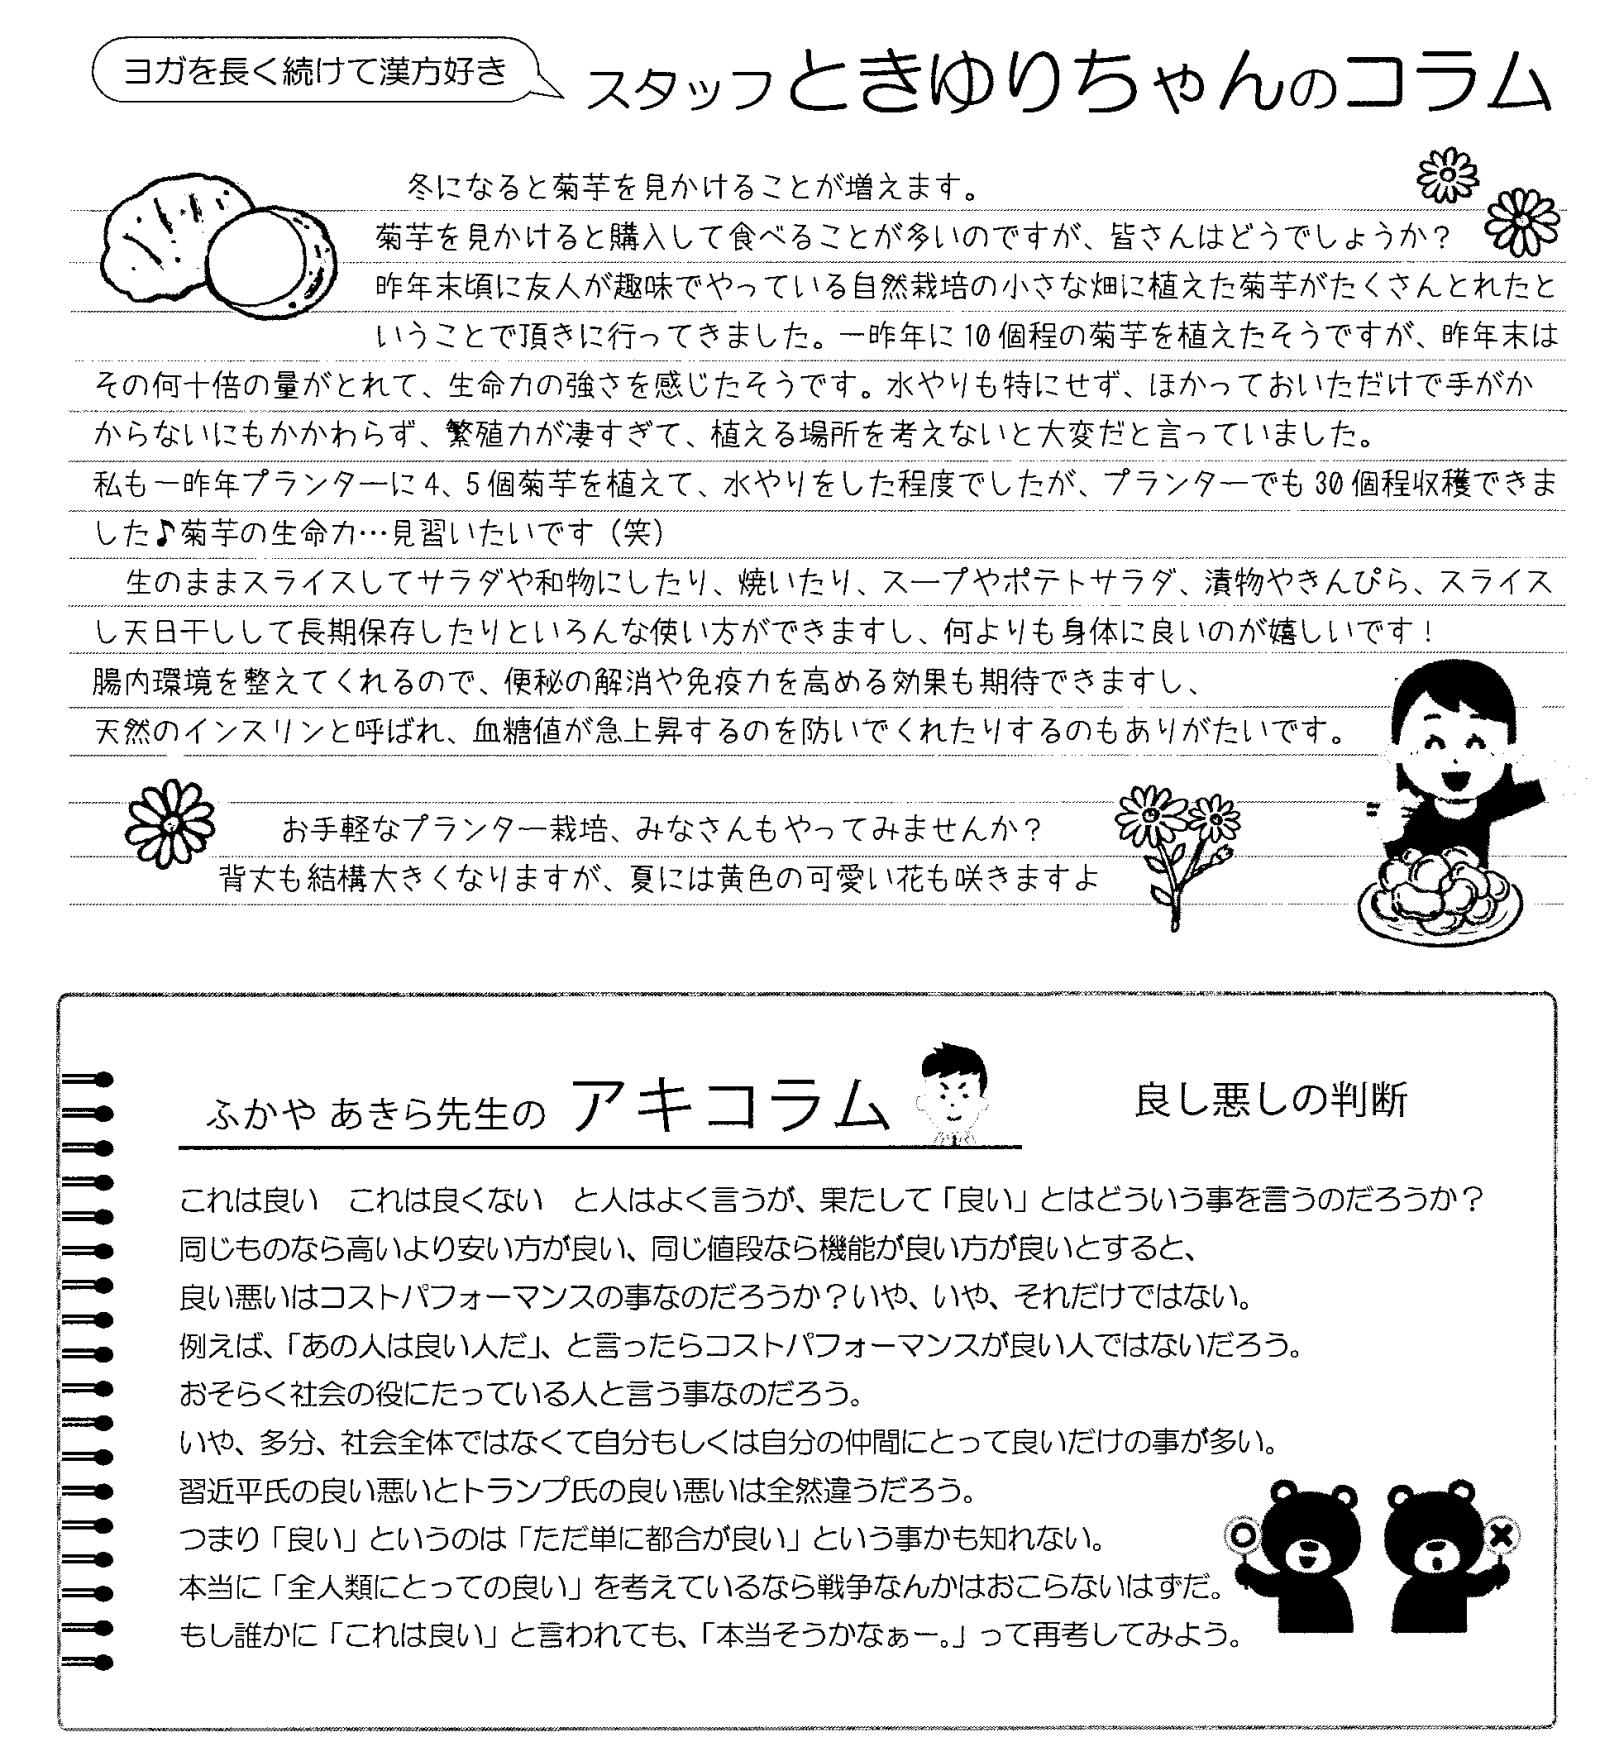 ヨガを長く続けて漢方好き
スタッフときゆりちゃんのコラム
冬になると菊芋を見かけることが増えます。
菊芋を見かけると購入して食べることが多いのですが、皆さんはどうでしょうか？
昨年末頃に友人が趣味でやっている自然栽培の小さな畑に植えた菊芋がたくさんとれたと
いうことで頂きに行ってきました。一昨年に10個程の菊芋を植えたそうですが、昨年末は
その何十倍の量がとれて、生命力の強さを感じたそうです。水やりも特にせず、ほかっておいただけで手がか
からないにもかかわらず、繁殖力が凄すぎて、植える場所を考えないと大変だと言っていました。
私も一昨年プランターに4、5個菊芋を植えて、水やりをした程度でしたが、プランターでも30個程収穫できま
した♪菊芋の生命力…見習いたいです（笑）
生のままスライスしてサラダや和物にしたり、焼いたり、スープやポテトサラダ、漬物やきんぴら、スライス
し天日干しして長期保存したりといろんな使い方ができますし、何よりも身体に良いのが嬉しいです！
腸内環境を整えてくれるので、便秘の解消や免疫力を高める効果も期待できますし、
天然のインスリンと呼ばれ、血糖値が急上昇するのを防いでくれたりするのもありがたいです。
お手軽なプランター栽培、みなさんもやってみませんか？
背丈も結構大きくなりますが、夏には黄色の可愛い花も咲きますよ
ふかや あきら先生の アキコラム
良し悪しの判断
これは良い　これは良くない　と人はよく言うが、果たして「良い」とはどういう事を言うのだろうか？
同じものなら高いより安い方が良い、同じ値段なら機能が良い方が良いとすると、
良い悪いはコストパフォーマンスの事なのだろうか？いや、いや、それだけではない。
例えば、「あの人は良い人だ」、と言ったらコストパフォーマンスが良い人ではないだろう。
おそらく社会の役にたっている人と言う事なのだろう。
いや、多分、社会全体ではなくて自分もしくは自分の仲間にとって良いだけの事が多い。
習近平氏の良い悪いとトランプ氏の良い悪いは全然違うだろう。
つまり「良い」というのは「ただ単に都合が良い」という事かも知れない。
本当に「全人類にとっての良い」を考えているなら戦争なんかはおこらないはずだ。
もし誰かに「これは良い」と言われても、「本当そうかなぁー。」って再考してみよう。